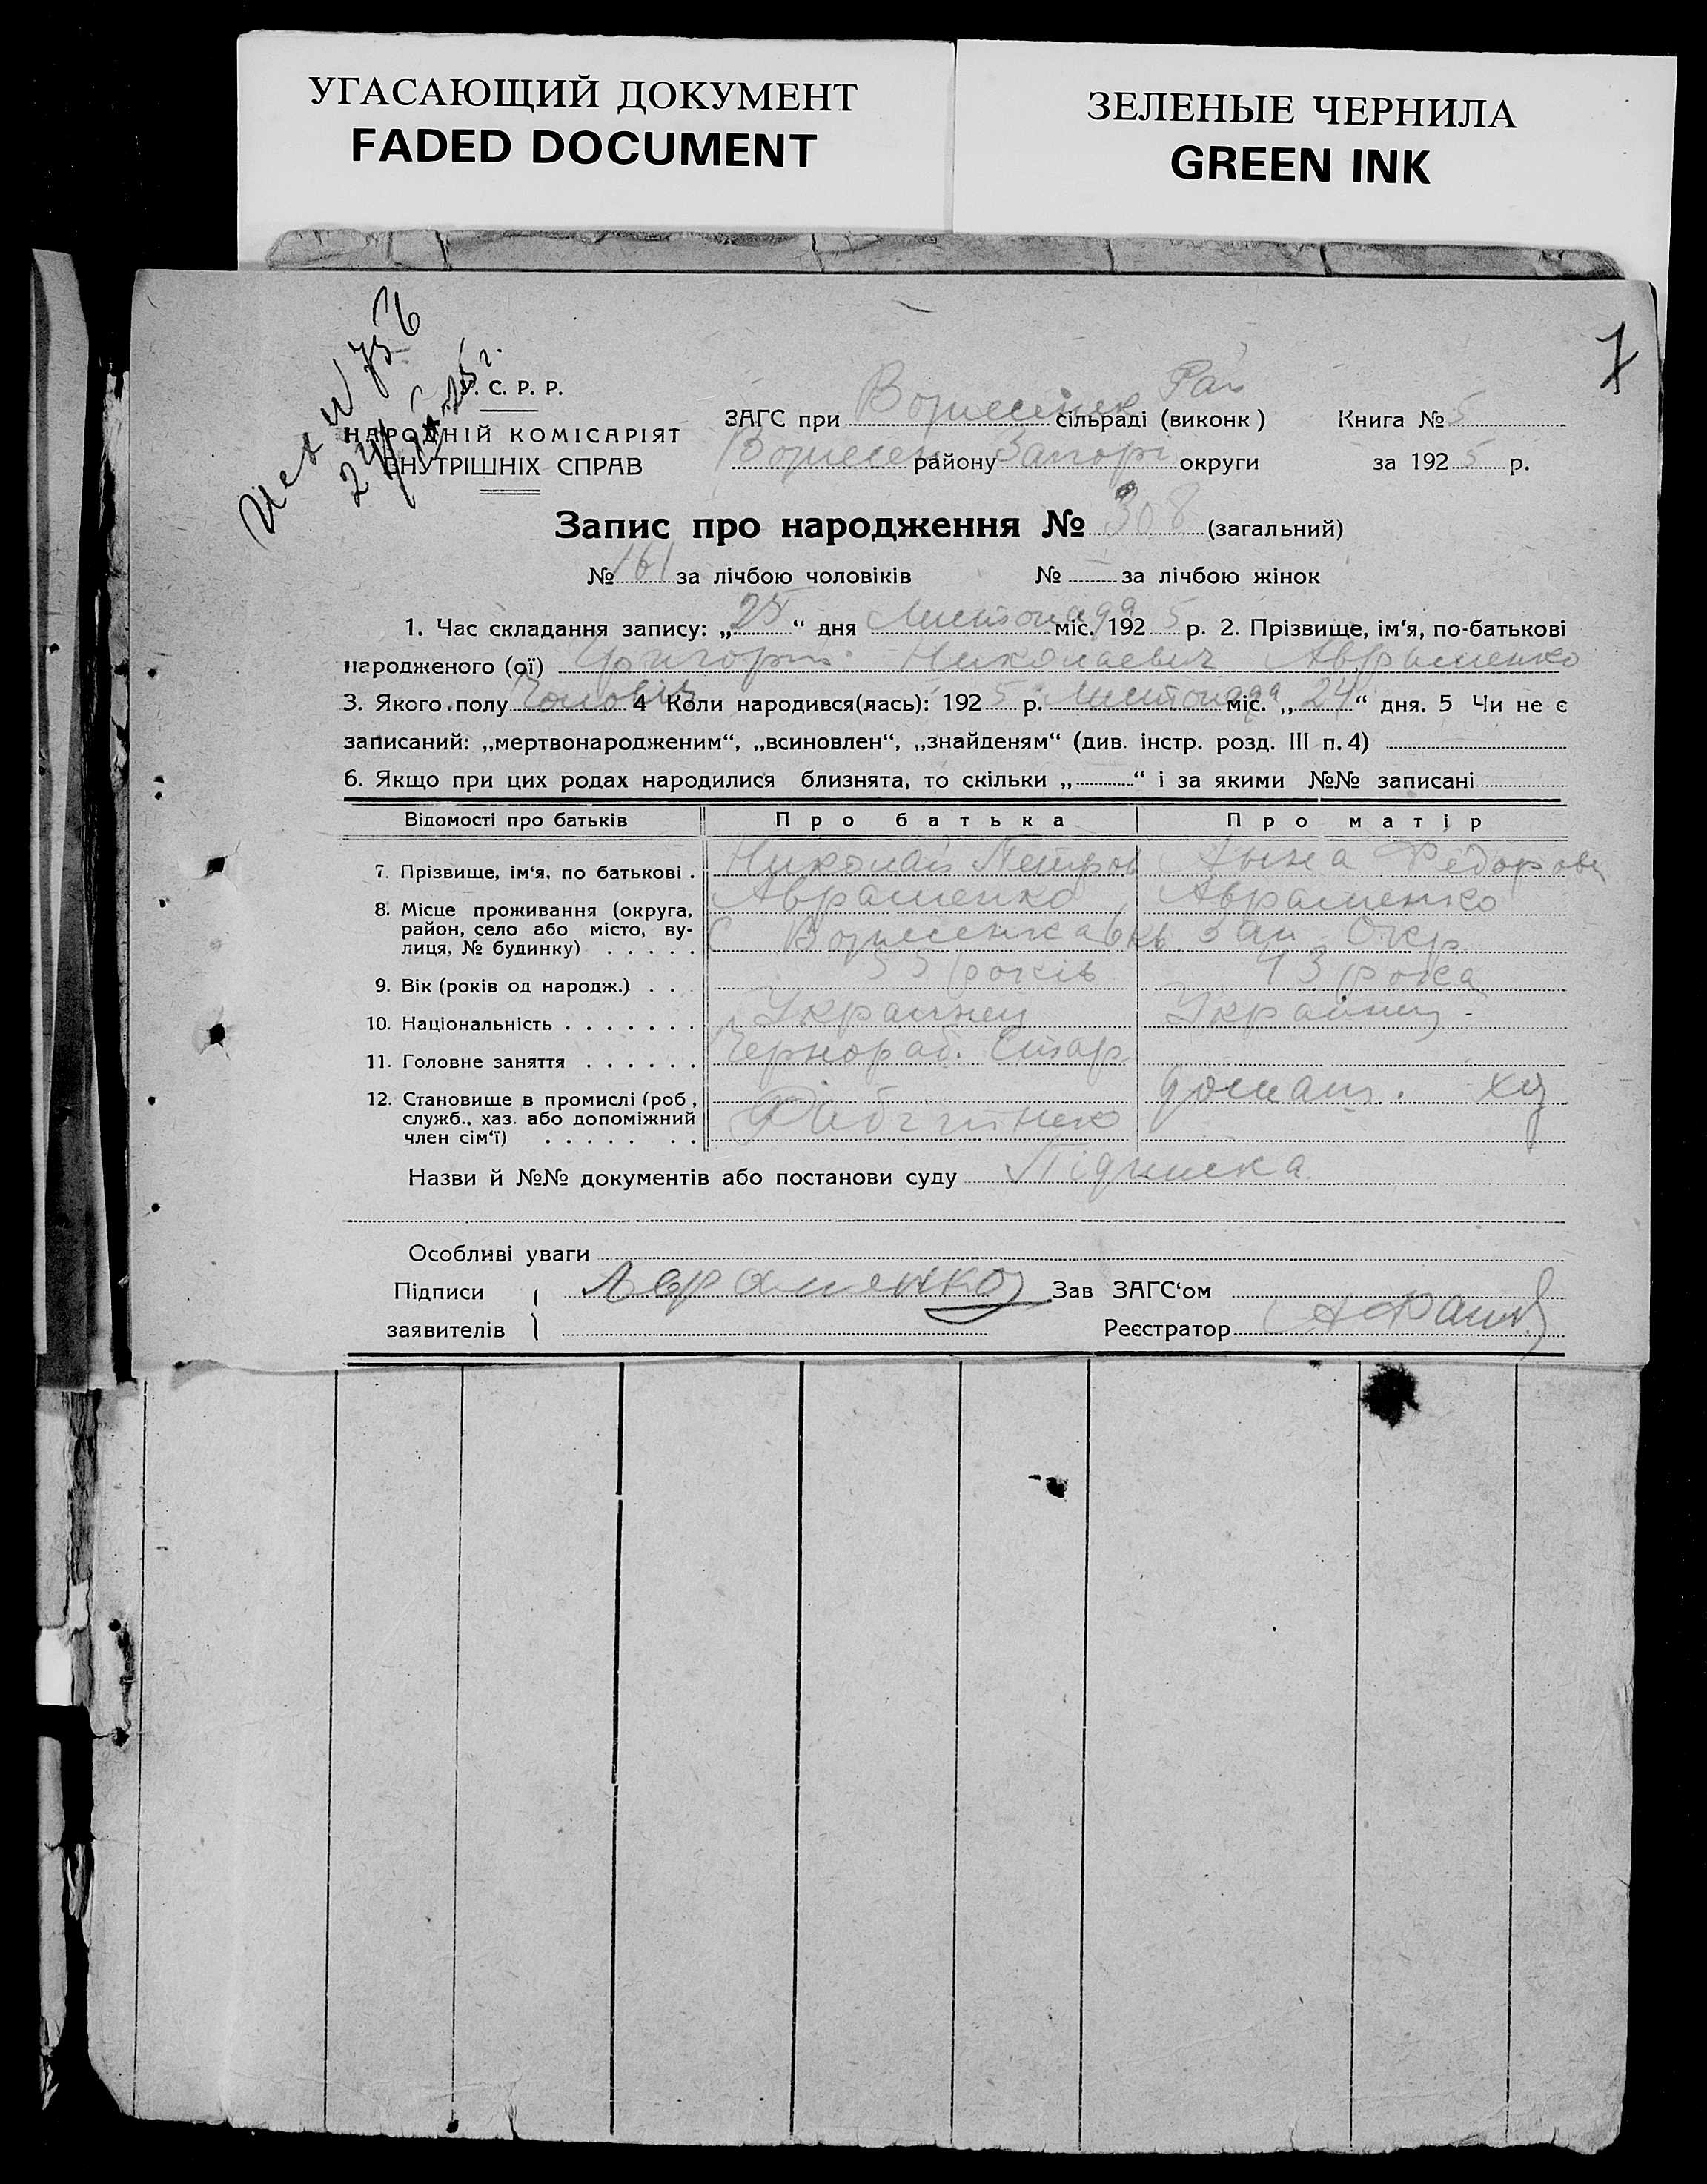 УГАСАЮЩИЙ ДОКУМЕНТ
FADED DOCUMENT
ЗЕЛЕНЫЕ ЧЕРНИЛА
GREEN INK
7
С. Р. Р.
НАРОДНІЙ КОМІСАРІЯТ
ВНУТРІШНІХ СПРАВ
ЗАГС при Вознесенск Рай сільраді (виконк) Книга № 5
Вознесен району Запорі округи за 1925 р.
Запис про народження № 308 (загальний)
№ 161 за лічбою чоловіків № за лічбою жінок
1. Час складання запису: „25“ дня Листопада міс. 1925 р. 2. Прізвище, ім‘я, по-батькові
народженого (ої) Григорій Николаевич Авраменко
3. Якого полу Чоловіч 4 Коли народився(лась): 1925 р. Листопада міс. „24“ дня. 5 Чи не є
записаний: „мертвонародженим“, „всиновлен“, „знайденям“ (див. інстр. розд. III п. 4)
6. Якщо при цих родах народилися близнята, то скільки „ “ і за якими №№ записані
Відомості про батьків Про батька Про матір
7. Прізвище, ім‘я, по батькові . Николай Петров Анна Федоровн
Авраменко Авраменко
8. Місце проживання (округа, район, село або місто, вулиця, № будинку) . . . . . С Вознесенка Зап Окр
9. Вік (років од народж.) . . . 55 років 43 рока
10. Національність . . . . . . . Украинец Украинец
11. Головне заняття . . . . . . Чернораб. Стар
12. Становище в промислі (роб, служб., хаз. або допоміжний член сім‘ї) . . . . . . . Робітнек домаш. хоз
Назви й №№ документів або постанови суду Підписка
Особливі уваги
Підписи Авраменко Зав ЗАГС‘ом
заявителів Реєстратор